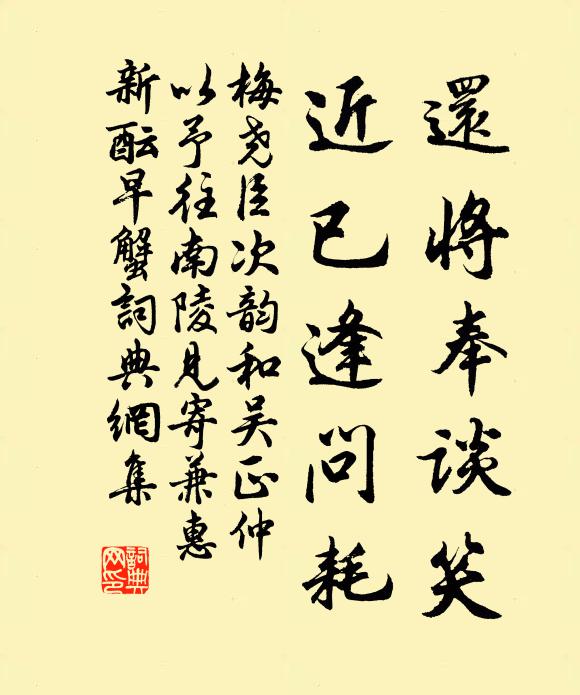 還將奉談笑
近已逢問耗
梅尧臣次韵和吴正仲
以予往南陵見寄兼惠
新酝早蟹詞典網集
詞典
网印